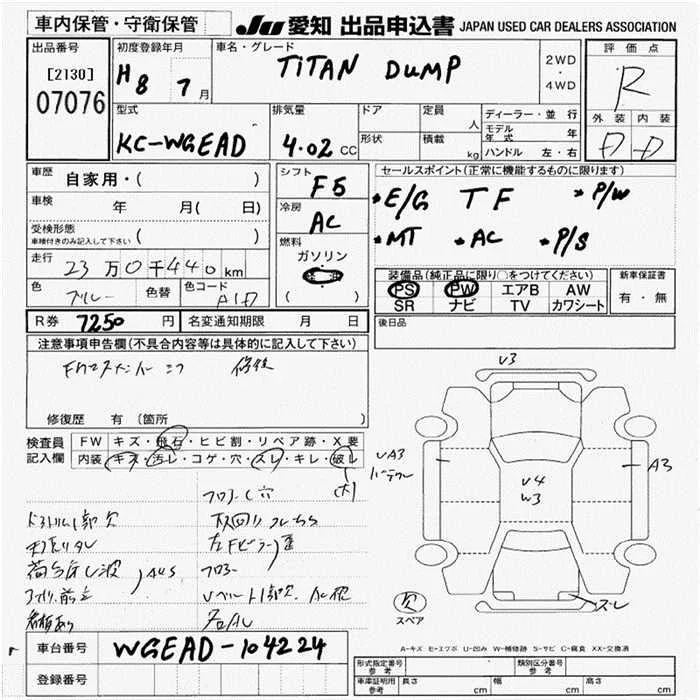 車内保管・守衛保管 JU 愛知 出品申込書 JAPAN USED CAR DEALERS ASSOCIATION
出品番号 初度登録年月 車名・グレード 評価点
[2130] H8 7月 TITAN DUMP 2WD・4WD R
07076
型式 排気量 ドア 定員 人 ディーラー・並行 外装 内装
KC-WGEAD 4.02 CC 形状 積載 kg モデル年式 年 D D
ハンドル 左・右
車歴 自家用・( ) シフト F5 セールスポイント(正常に機能するものに限ります)
車検 年 月( 日) 冷房 AC *E/G TF *P/W
受検形態 車検付きのみ記入して下さい ( ) 燃料 ガソリン *MT *AC *P/S
走行 23万0千440km ( )
色 ブルー 色替 色コード 装備品(純正品に限り○をつけてください) 新車保証書
PS PW エアB AW 有・無
SR ナビ TV カワシート
R券 7250円 名変通知期限 月 日 後日品
注意事項申告欄(不具合内容等は具体的に記入して下さい)
修復歴 有 (箇所 )
検査員記入欄 FW キズ・飛石・ヒビ割・リペア跡・X要
内装 キズ・汚レ・コゲ・穴・スレ・キレ・破レ
フロアー穴 (大)
V3
UA3
A3
V4
W3
スレ
欠
スペア
A-キズ E-エクボ U-凹み W-補修跡 S-サビ C-腐食 XX-交換済
車台番号 WGEAD-104224
登録番号
形式指定番号 参考 類別区分番号 参考
車庫証明用 参考 長さ cm 幅 cm 高さ cm